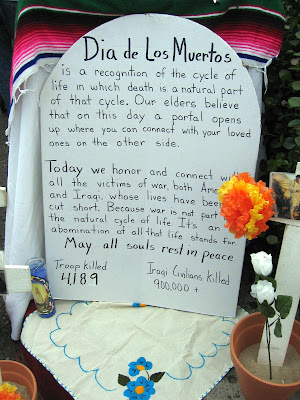 Dia de Los Muertos
is a recognition of the cycle of
life in which death is a natural part
of that cycle. Our elders believe
that on this day a portal opens
up where you can connect with your loved
ones on the other side.
Today we honor and connect with
all the victims of war, both
and Iraqi, whose lives have been
cut short. Because war is not part
the natural cycle of life. It's an
abomination of all that life stands for.
May all souls rest in peace
Troop Killed
4189
Iraqi Civilians Killed
900,000 +